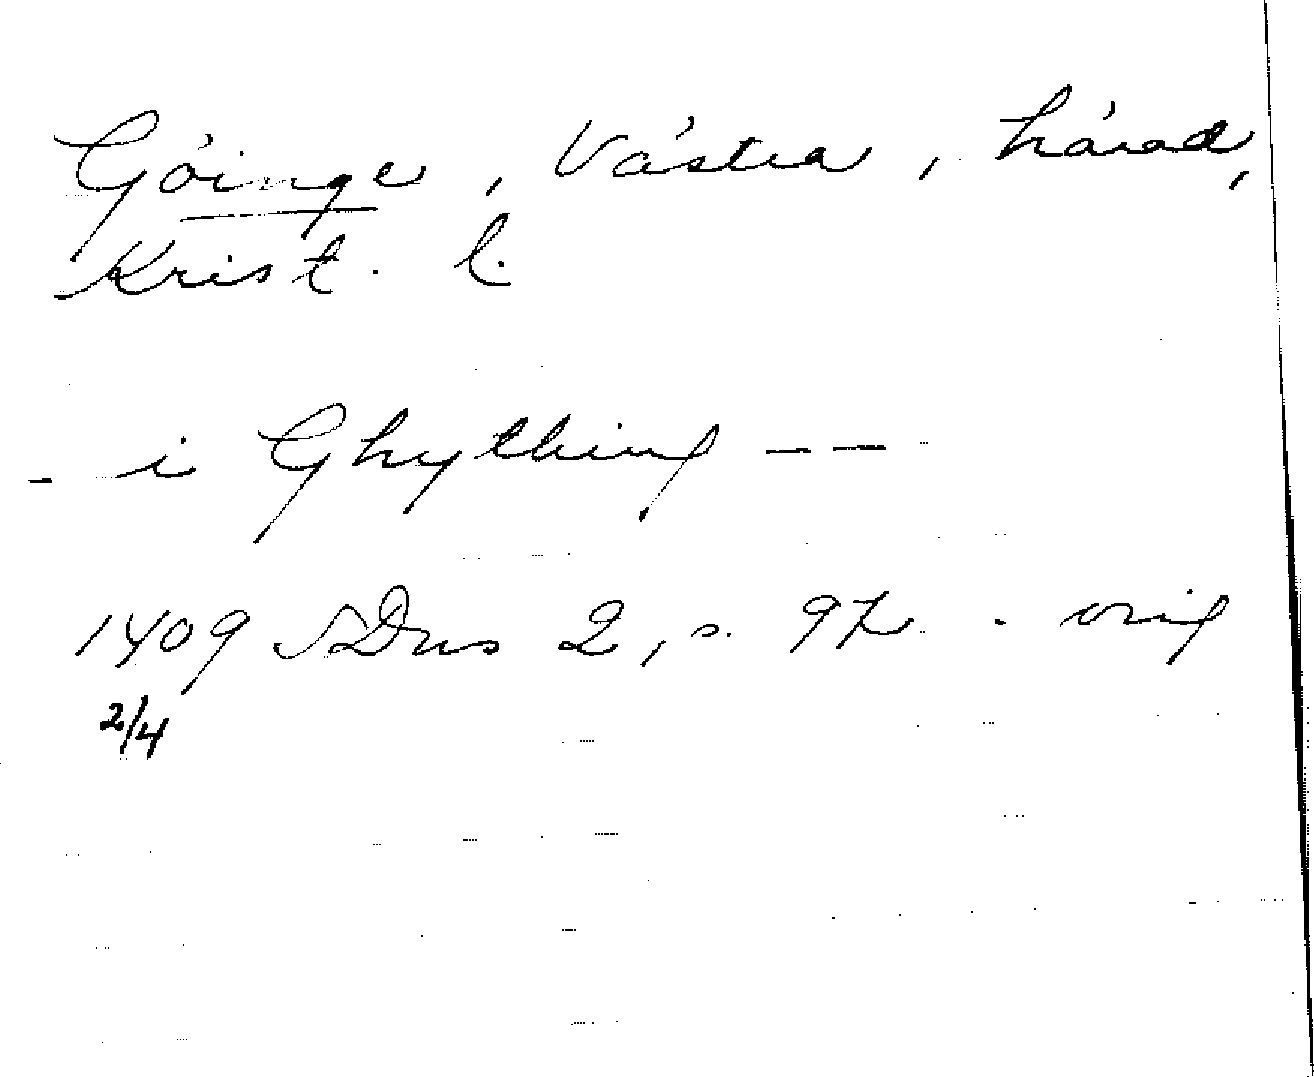 Göinge, Västra, härad,
Krist. l.
- i Ghything - -
1409 SDns 2, s. 97. orig
2/4